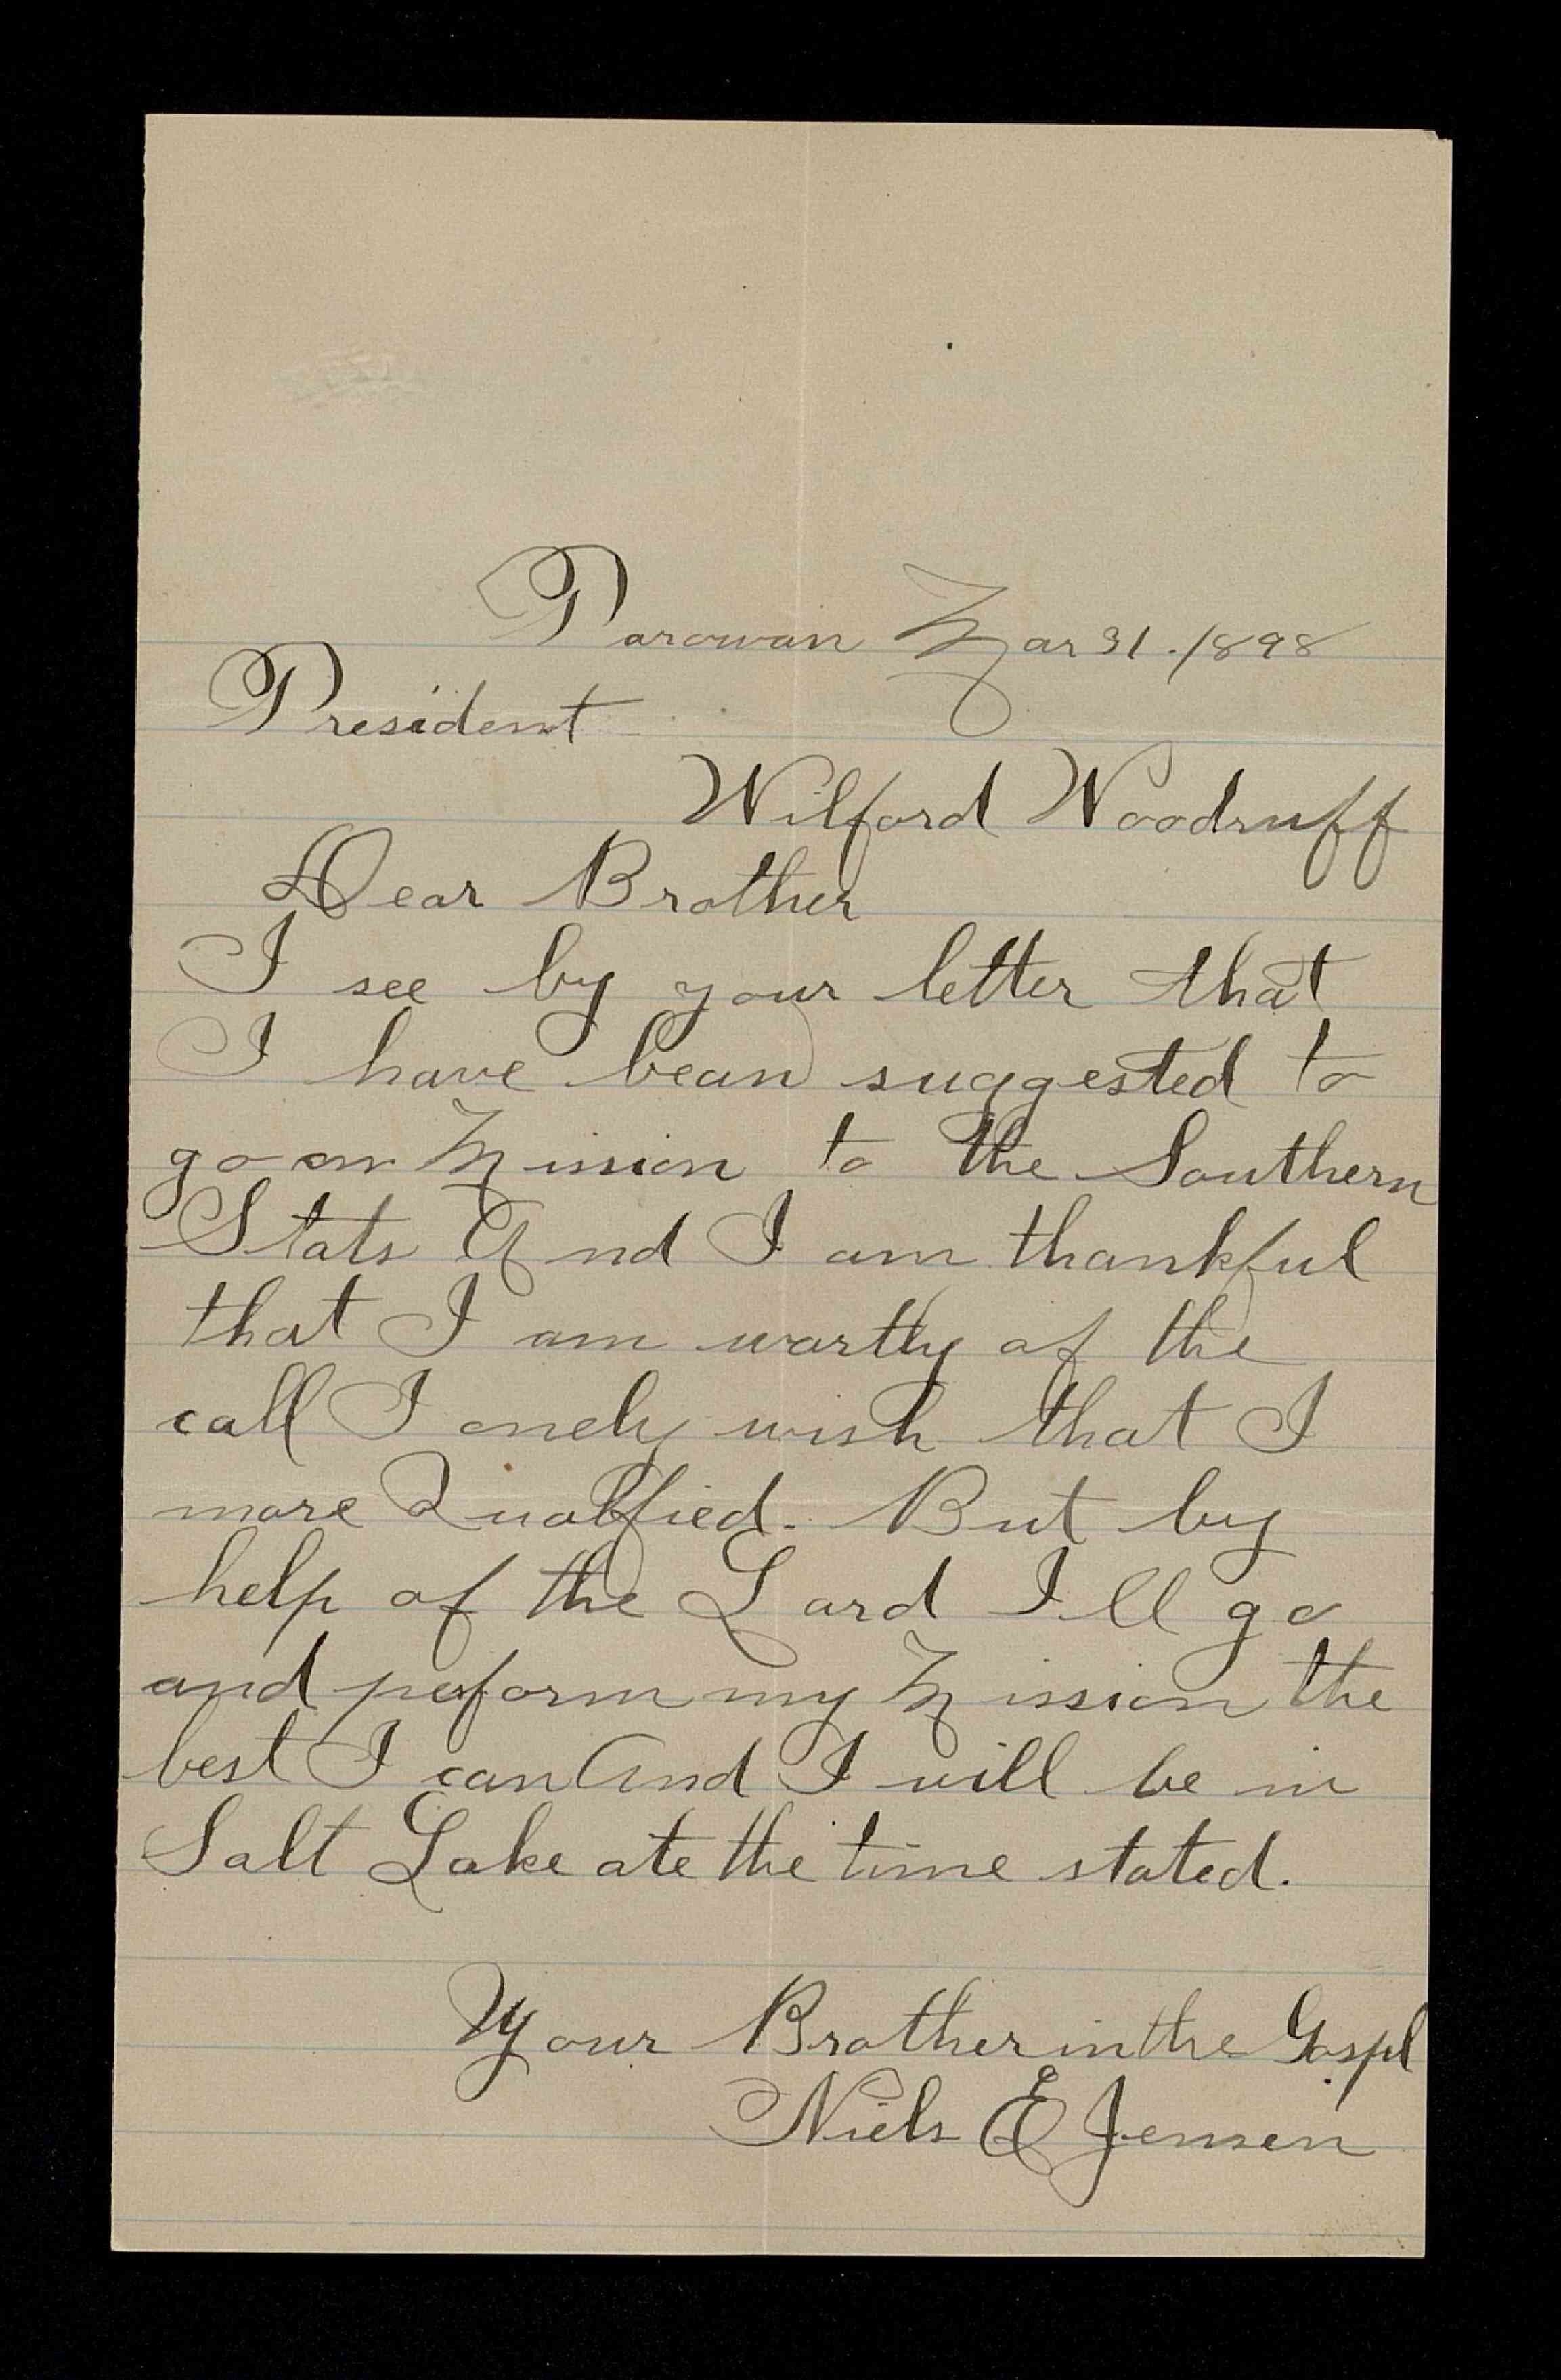 Parowan Mar 31. 1898
President
Wilford Woodruff
Dear Brother
I see by your letter that
I have bean suggested to
go on Mission to the Southern
Stats And I am thankful
that I am worthy of the
call I onely wish that I
more Qualfied. But by
help of the Lord I ll go
and peform my Mission the
best I can And I will be in
Salt Lake ate the time stated.
Your Brother in the Gospl
Niels E Jensen